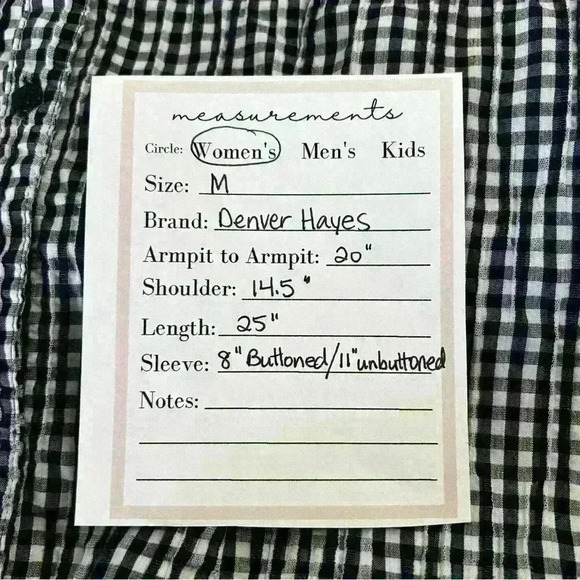 measurements
Circle: Women's Men's Kids
Size: M
Brand: Denver Hayes
Armpit to Armpit: 20"
Shoulder: 14.5"
Length: 25"
Sleeve: 8" Buttoned/11" unbuttoned
Notes: